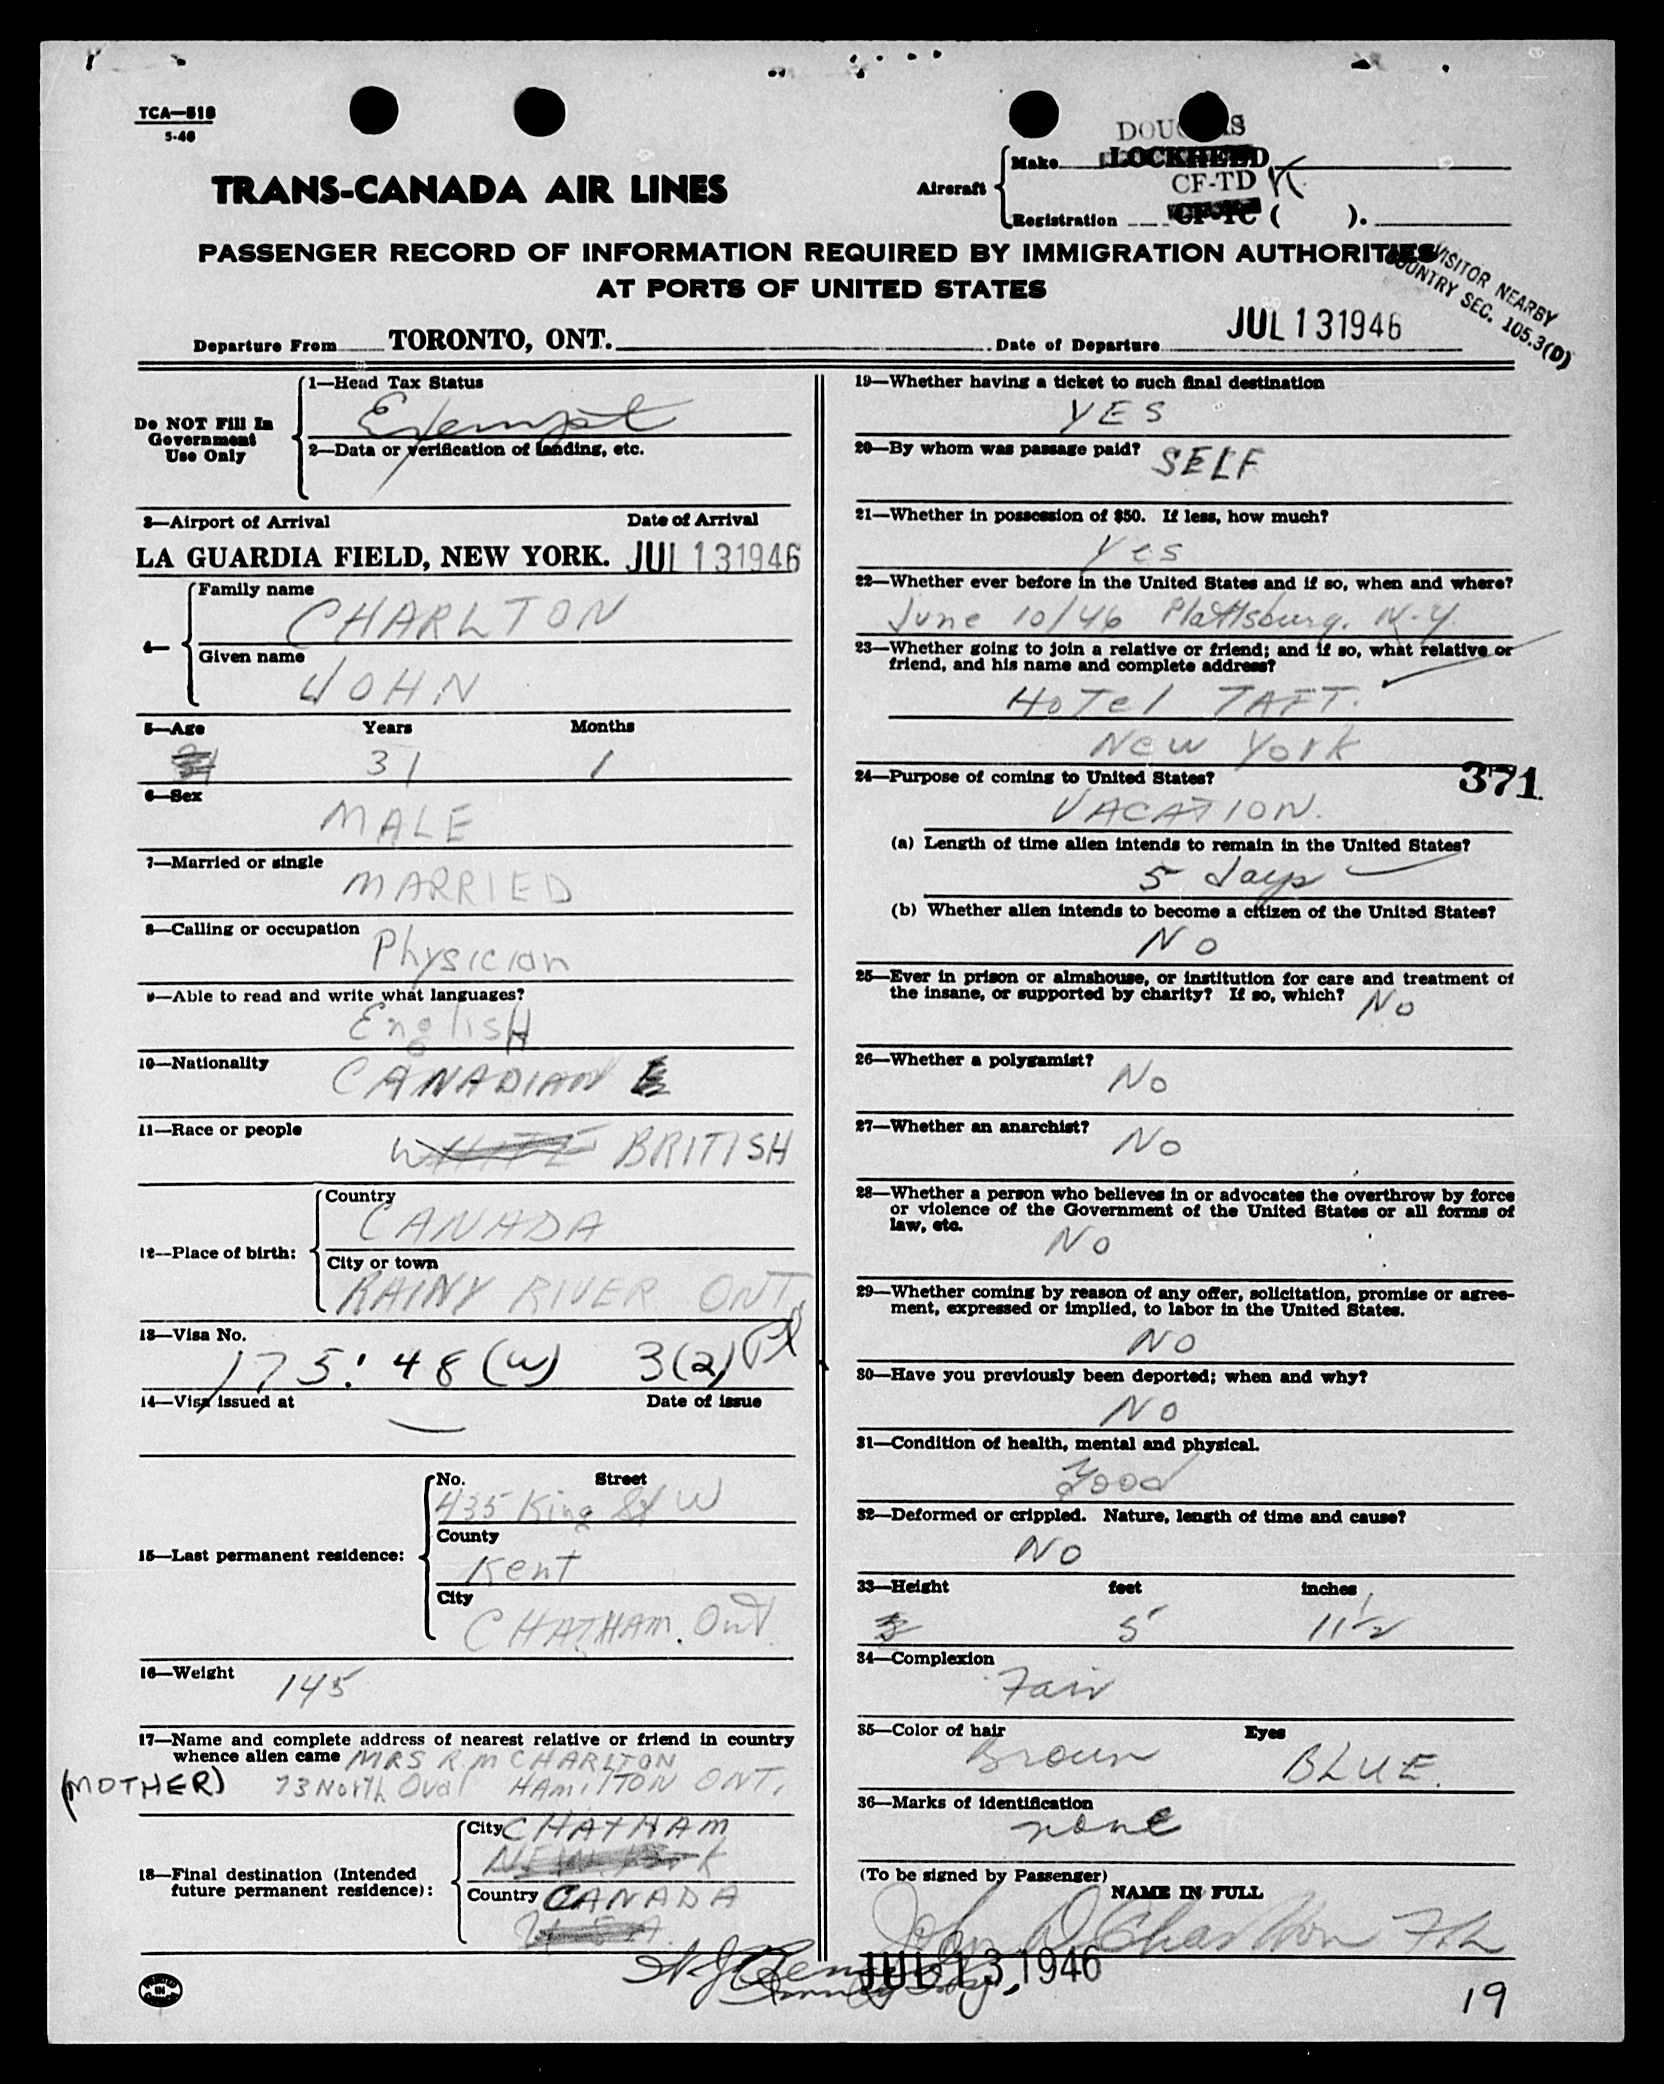 TCA—518
5-46
DOUGLAS
Make LOCKHEED
TRANS-CANADA AIR LINES
Aircraft
CF-TD K
Registration CF-TC ( ).
PASSENGER RECORD OF INFORMATION REQUIRED BY IMMIGRATION AUTHORITIES
AT PORTS OF UNITED STATES
VISITOR NEARBY
COUNTRY SEC. 105.3(D)
Departure From TORONTO, ONT. Date of Departure JUL 13 1946
Do NOT Fill In
Government
Use Only
1—Head Tax Status
Exempt
2—Data or verification of landing, etc.
3—Airport of Arrival Date of Arrival
LA GUARDIA FIELD, NEW YORK. JUL 13 1946
4—
Family name
CHARLTON
Given name
JOHN
5—Age Years Months
31 1
6—Sex
MALE
7—Married or single
MARRIED
8—Calling or occupation
Physician
9—Able to read and write what languages?
English
10—Nationality
CANADIAN
11—Race or people
WHITE BRITISH
12—Place of birth:
Country
CANADA
City or town
RAINY RIVER ONT.
13—Visa No.
175.48 (w) 3(2)
14—Visa issued at Date of issue
—
15—Last permanent residence:
No. Street
435 King St W
County
Kent
City
CHATHAM. Ont.
16—Weight
145
17—Name and complete address of nearest relative or friend in country
whence alien came MRS R.M CHARLTON
(MOTHER) 73 North Oval HAMILTON ONT.
18—Final destination (Intended
future permanent residence):
City CHATHAM
NEW YORK
Country CANADA
USA.
19—Whether having a ticket to such final destination
YES
20—By whom was passage paid?
SELF
21—Whether in possession of $50. If less, how much?
Yes
22—Whether ever before in the United States and if so, when and where?
June 10/46 Plattsburg. N-Y.
23—Whether going to join a relative or friend; and if so, what relative or
friend, and his name and complete address?
HoTel TAFT.
New York
24—Purpose of coming to United States?
371
VACATION.
(a) Length of time alien intends to remain in the United States?
5 days
(b) Whether alien intends to become a citizen of the United States?
No
25—Ever in prison or almshouse, or institution for care and treatment of
the insane, or supported by charity? If so, which? No
26—Whether a polygamist?
No
27—Whether an anarchist?
No
28—Whether a person who believes in or advocates the overthrow by force
or violence of the Government of the United States or all forms of
law, etc.
No
29—Whether coming by reason of any offer, solicitation, promise or agree-
ment, expressed or implied, to labor in the United States.
NO
30—Have you previously been deported; when and why?
NO
31—Condition of health, mental and physical.
Good
32—Deformed or crippled. Nature, length of time and cause?
NO
33—Height feet inches
5 11½
34—Complexion
Fair
35—Color of hair Eyes
Brown BLUE.
36—Marks of identification
none
(To be signed by Passenger)
NAME IN FULL
John D Charlton
JUL 13 1946
PRINTED
IN
CANADA
19